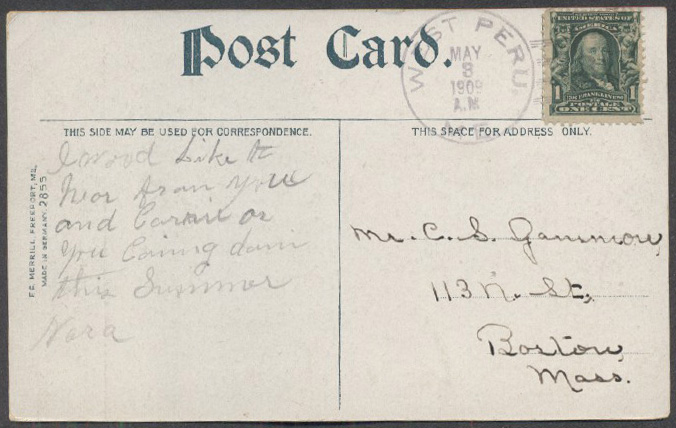 Post Card.
WEST PERU,
MAY
3
1909
A.M.
ME.
UNITED STATES OF AMERICA
1 1
POSTAGE
ONE CENT
THIS SIDE MAY BE USED FOR CORRESPONDENCE.
THIS SPACE FOR ADDRESS ONLY.
I wood Like to
hear from you
and Carrie ar
you Coming down
this Summer
Nora
F.E. MERRILL FREEPORT, ME.
MADE IN GERMANY. 2855
Mr. C. S. Gammon,
113 N. St,
Boston,
Mass.